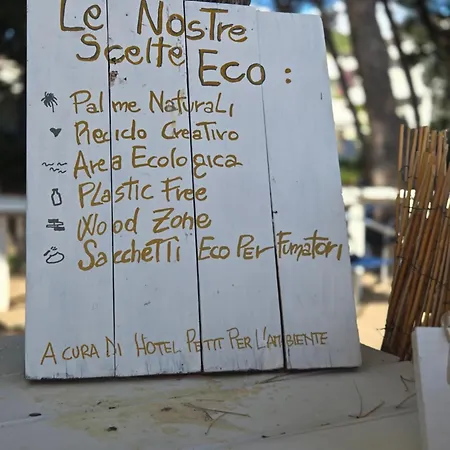 Le Nostre
Scelte Eco :
Palme Naturali
Riciclo Creativo
Area Ecologica
Plastic Free
Wood Zone
Sacchetti Eco Per Fumatori
A cura di Hotel Petit Per L'ambiente